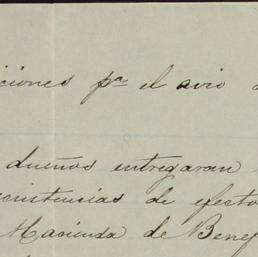 ciones pª el avio
dueños entregaran
existencias de efecto
Hacienda de Benef